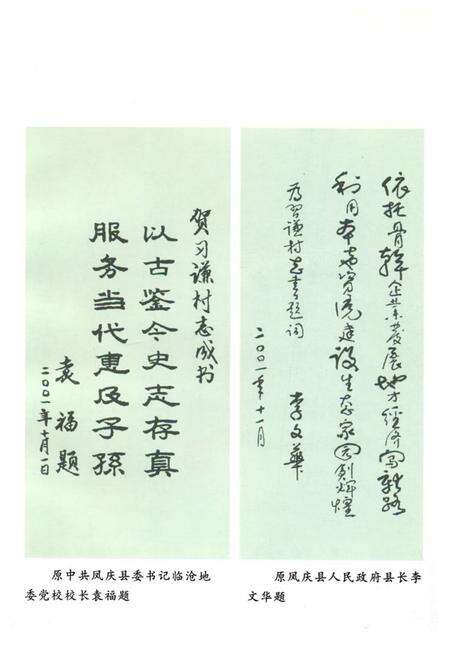 贺习谦村志成书
以古鉴今史志存真
服务当代惠及子孫
袁福题
二〇〇一年十月一日
原中共凤庆县委书记临沧地
委党校校长袁福题
依托骨幹企业发展地方经济新路
利用本地资源建设生态家园创辉煌
为習谦村志书题词
李文華
二〇〇一年十一月
原凤庆县人民政府县长李
文华题